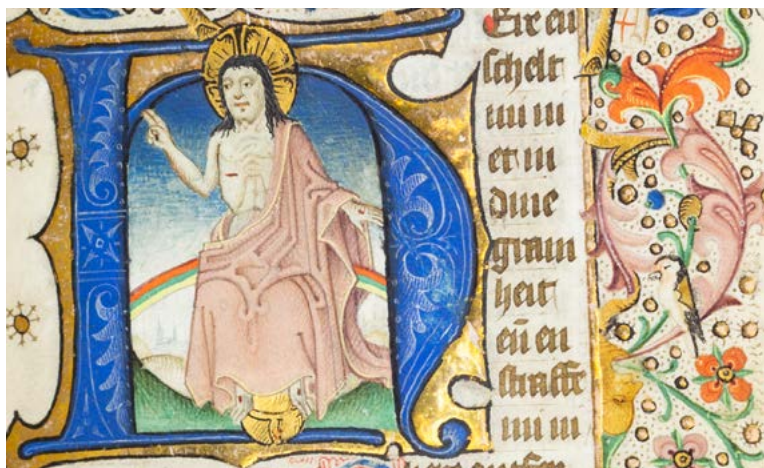 HEre en
schelt
mi ni
et in
dine
gram
heit
eñ en
straffe
mi ni